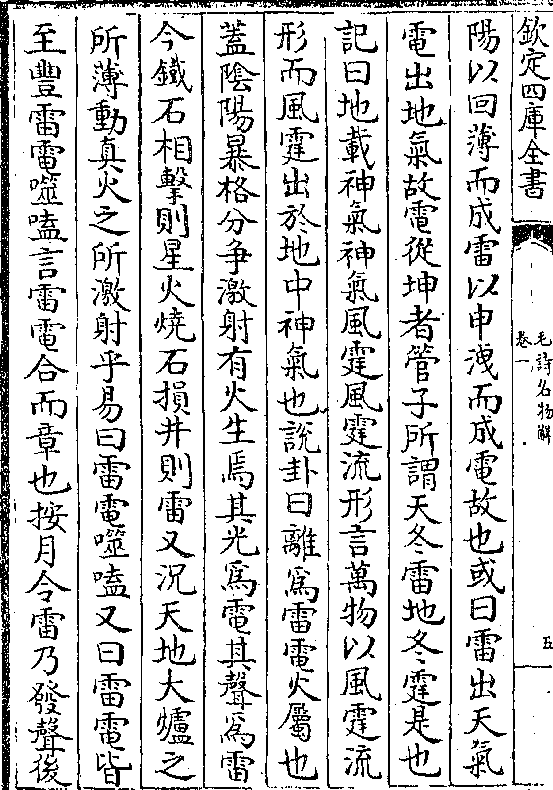 欽定四庫全書
毛詩名物解
卷一
五
陽以回薄而成雷以申洩而成電故也或曰雷出天氣
電出地氣故電從坤者管子所謂天冬雷地冬霆是也
記曰地載神氣神氣風霆風霆流形言萬物以風霆流
形而風霆出於地中神氣也說卦曰離為雷電火屬也
蓋陰陽暴格分争激射有火生焉其光為電其聲為雷
今鐵石相擊則星火燒石損井則雷又況天地大爐之
所薄動真火之所激射乎易曰雷電噬嗑又曰雷電皆
至豐雷電噬嗑言雷電合而章也按月令雷乃發聲後